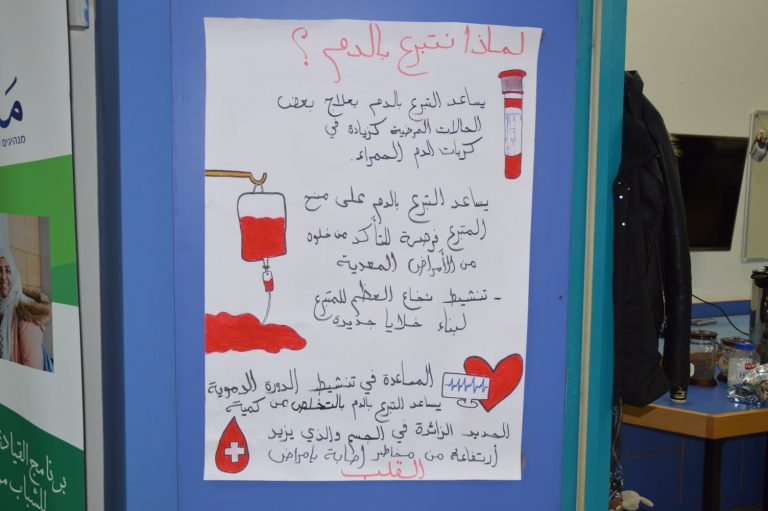 لماذا نتبرع بالدم ؟
يساعد التبرع بالدم بعلاج بعض
الحالات المرضية كزيادة في
كريات الدم الحمراء.
يساعد التبرع بالدم على منح
المتبرع فرصة للتأكد من خلوه
من الأمراض المعدية
- تنشيط نخاع العظم للمتبرع
لبناء خلايا جديدة
المساعدة في تنشيط الدورة الدموية
يساعد التبرع بالدم بالتخلص من كمية
الحديد الزائرة في الجسم والذي يزيد
أرتفاعه من مخاطر اصابة بإمراض
القلب
מנהיגים
برنامج القياد
للشباب